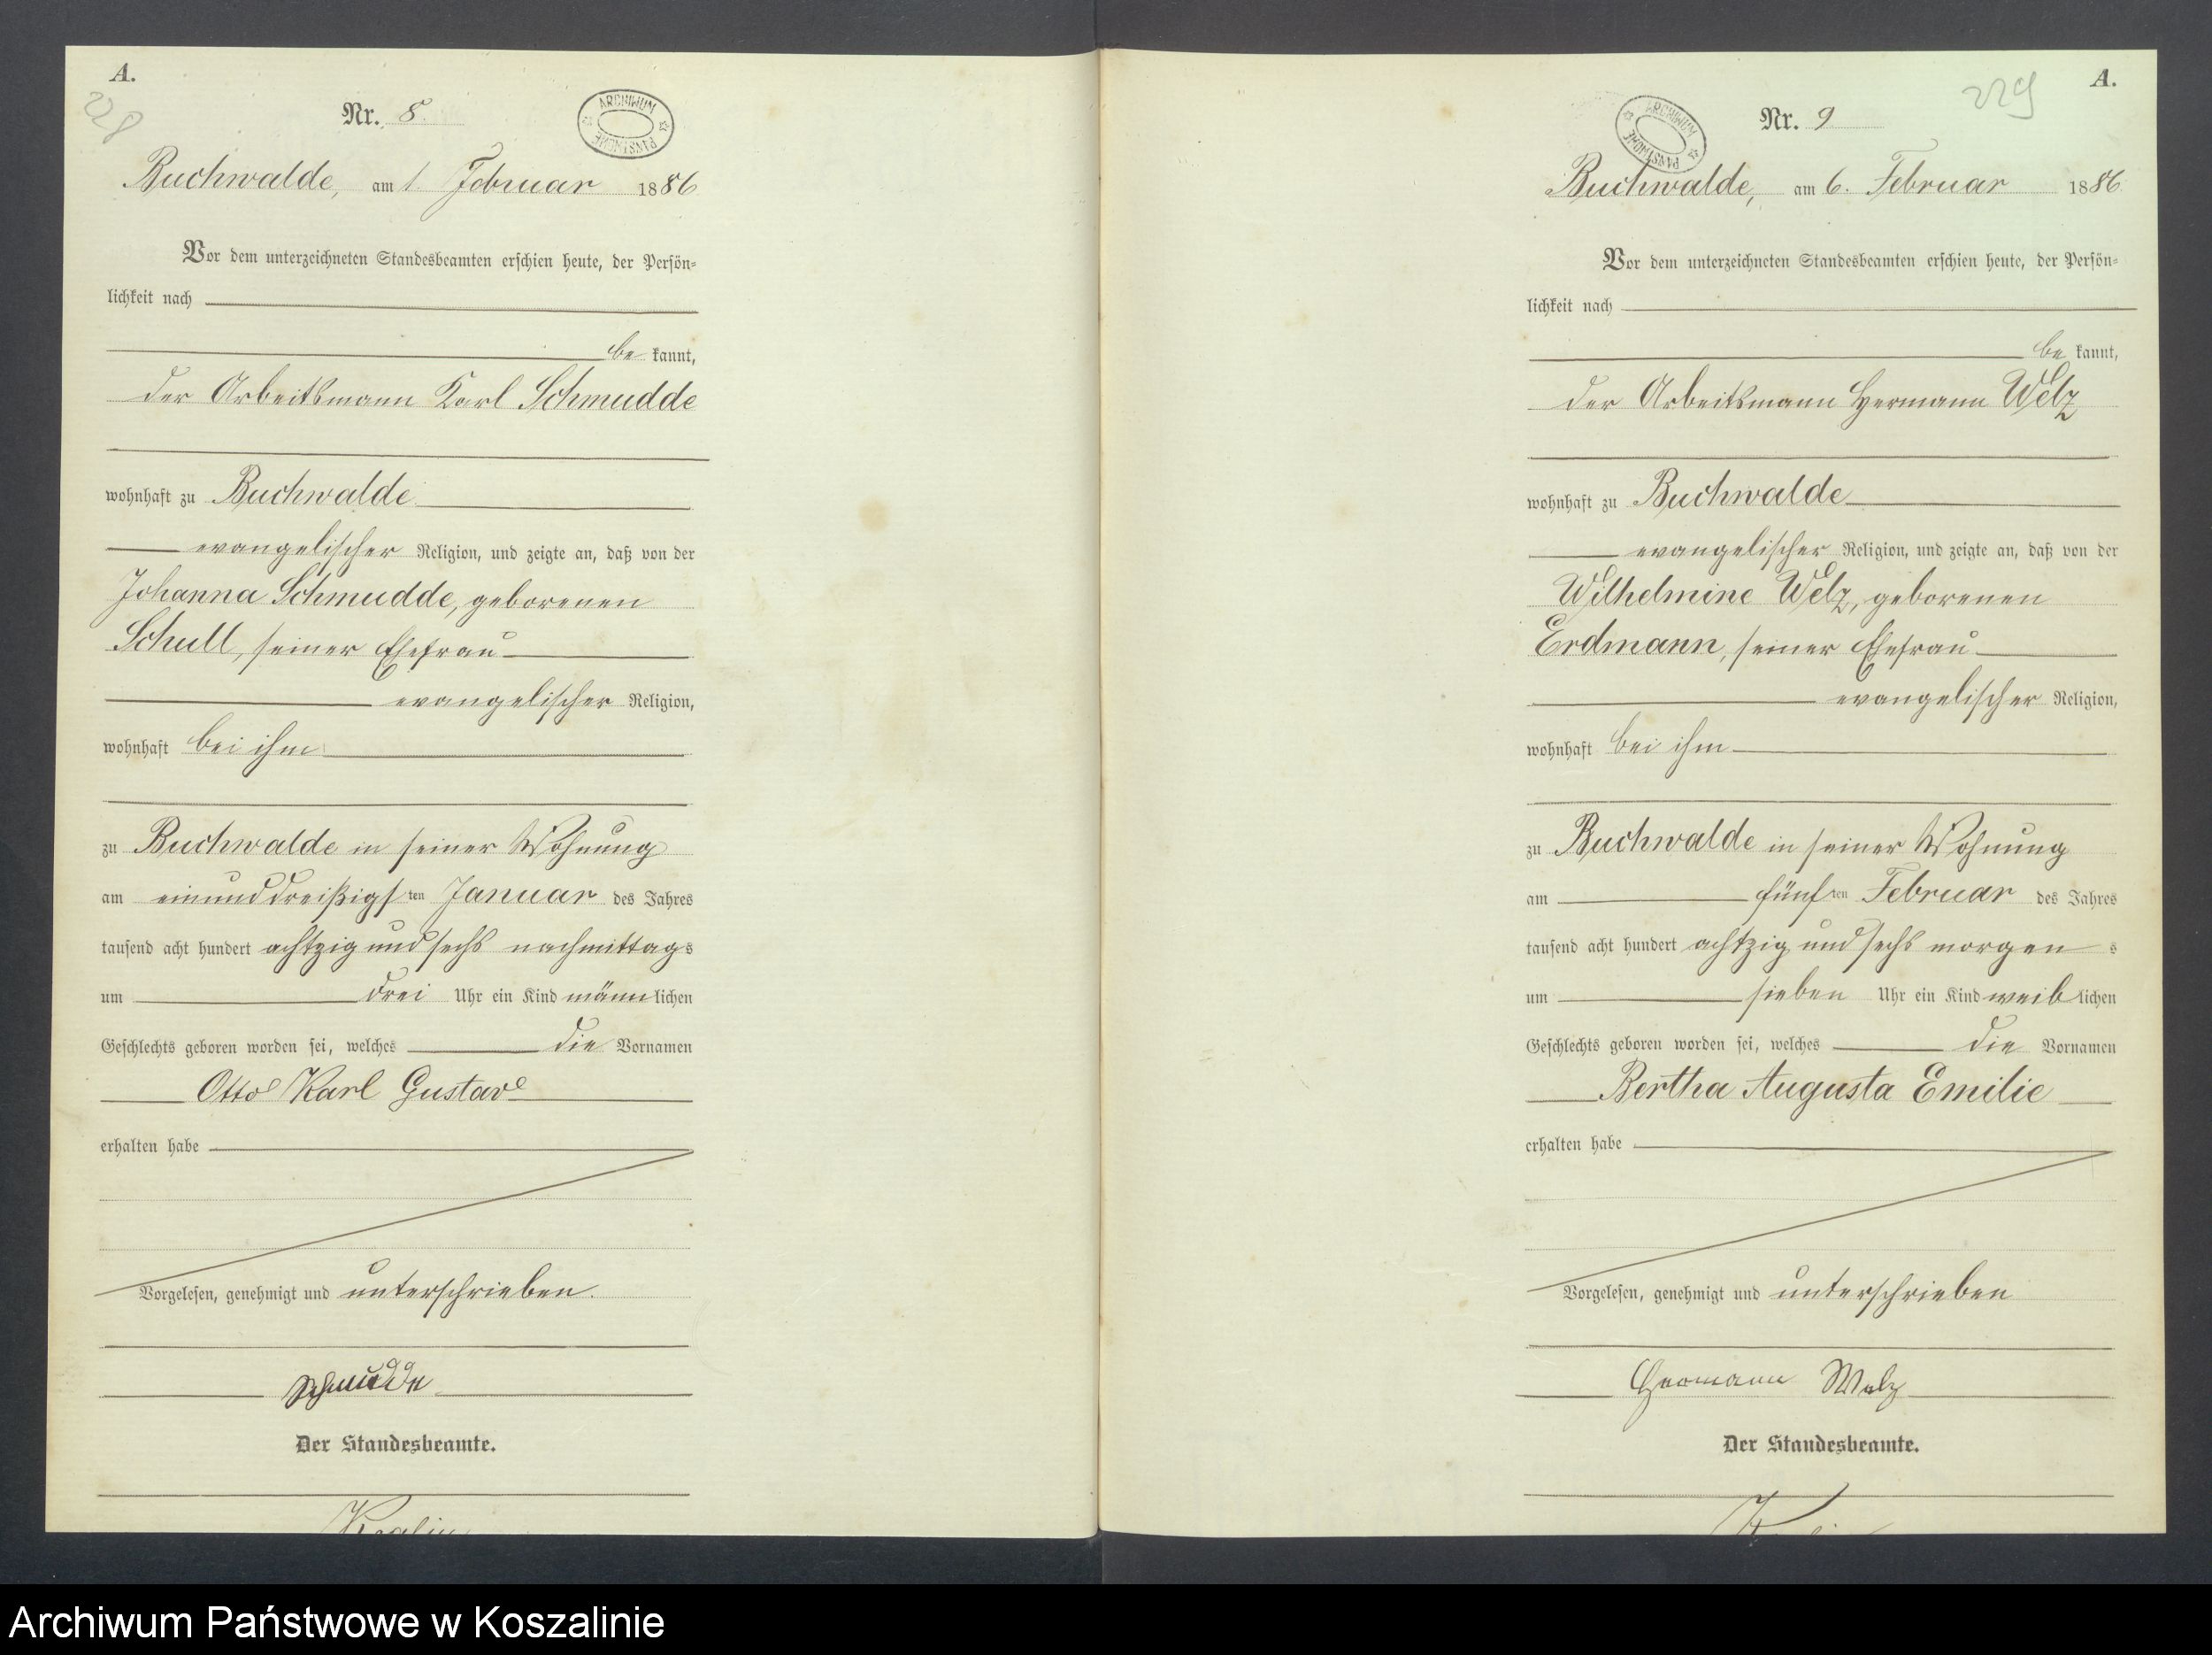 A.
228
Nr. 8.
ARCHIWUM PAŃSTWOWE
Buchwalde, am 1. Februar 1886
Vor dem unterzeichneten Standesbeamten erschien heute, der Persön-
lichkeit nach
be kannt,
der Arbeitsmann Karl Schmudde
wohnhaft zu Buchwalde
evangelischer Religion, und zeigte an, daß von der
Johanna Schmudde, geborenen
Schull, seiner Ehefrau
evangelischer Religion,
wohnhaft bei ihm
zu Buchwalde in seiner Wohnung
am einunddreißigsten Januar des Jahres
tausend acht hundert achtzig und sechs nachmittags
um drei Uhr ein Kind männlichen
Geschlechts geboren worden sei, welches die Vornamen
Otto Karl Gustav
erhalten habe
Vorgelesen, genehmigt und unterschrieben.
Schmudde
Der Standesbeamte.
A.
229
Nr. 9
ARCHIWUM PAŃSTWOWE
Buchwalde, am 6. Februar 1886
Vor dem unterzeichneten Standesbeamten erschien heute, der Persön-
lichkeit nach
be kannt,
der Arbeitsmann Hermann Welz
wohnhaft zu Buchwalde
evangelischer Religion, und zeigte an, daß von der
Wilhelmine Welz, geborenen
Erdmann, seiner Ehefrau
evangelischer Religion,
wohnhaft bei ihm
zu Buchwalde in seiner Wohnung
am fünften Februar des Jahres
tausend acht hundert achtzig und sechs morgens
um sieben Uhr ein Kind weiblichen
Geschlechts geboren worden sei, welches die Vornamen
Bertha Augusta Emilie
erhalten habe
Vorgelesen, genehmigt und unterschrieben
Hermann Welz
Der Standesbeamte.
Archiwum Państwowe w Koszalinie